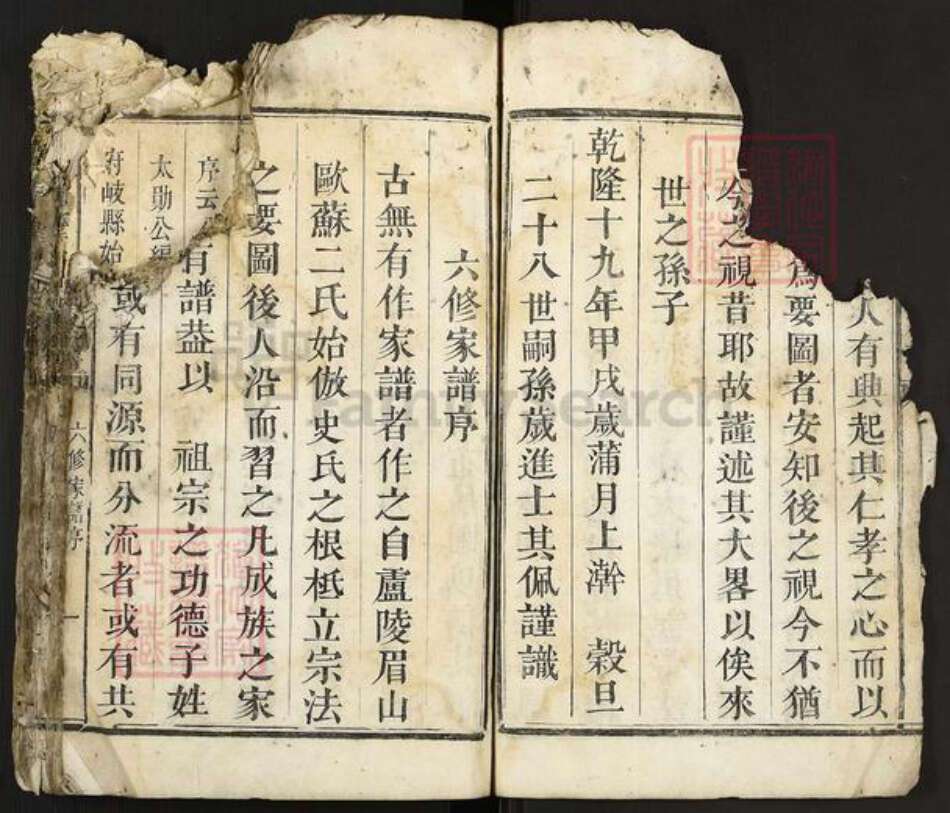 人有興起其仁孝之心而以
爲要圖者安知後之視今不猶
今之視昔耶故謹述其大畧以俟來
世之孫子
乾隆十九年甲戌歲蒲月上澣 穀旦
二十八世嗣孫歲進士其佩謹識
六修家譜序
古無有作家譜者作之自盧陵眉山
歐蘇二氏始倣史氏之根柢立宗法
之要圖後人沿而習之凡成族之家
有譜葢以 祖宗之功德子姓
或有同源而分流者或有共
序云
太勛公編
府岐縣始
六修家譜序 一